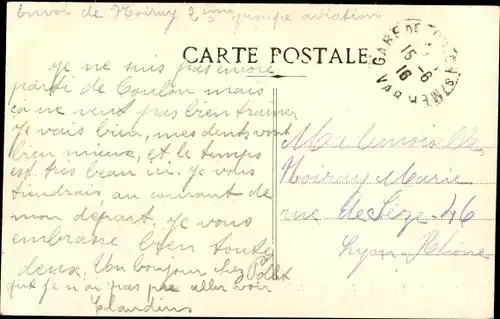 Envoi de Noiray 2ème groupe aviation
CARTE POSTALE
GARE DE
15-6
16
Je ne suis pas encore
parti de Toulon mais
ça ne veut pas bien trainer
Je vais bien, mes dents vont
bien mieux, et le temps
est très beau ici. Je vous
tiendrais au courant de
mon départ. Je vous
embrasse bien toutes
deux. Un bonjour chez Pollet
que je n'ai pas pu aller voir
Claudius
Mademoiselle
Noiray Marie
rue de Sèze 46
Lyon - Rhône